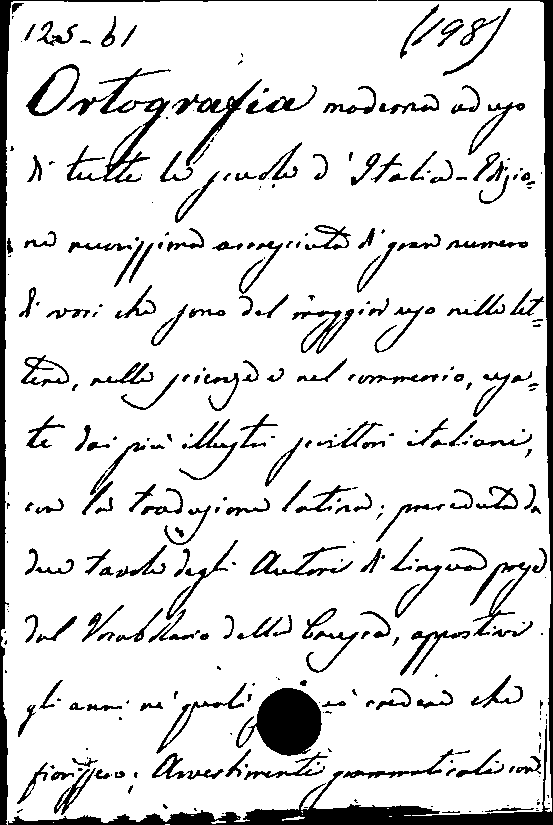 125-b1 (198)
Ortografia moderna ad uso
di tutte le scuole d'Italia - Edizio=
ne nuovissima accresciuta di gran numero
di voci che sono del maggior uso nelle let=
tere, nelle scienze e nel commercio, usa=
te dai più illustri scrittori italiani,
con la traduzione latina; preceduta da
due tavole degli Autori di lingua prese
dal Vocabolario della Crusca, appostivi
gli anni ne' quali credere che
fiorissero; Avvertimenti grammaticali con